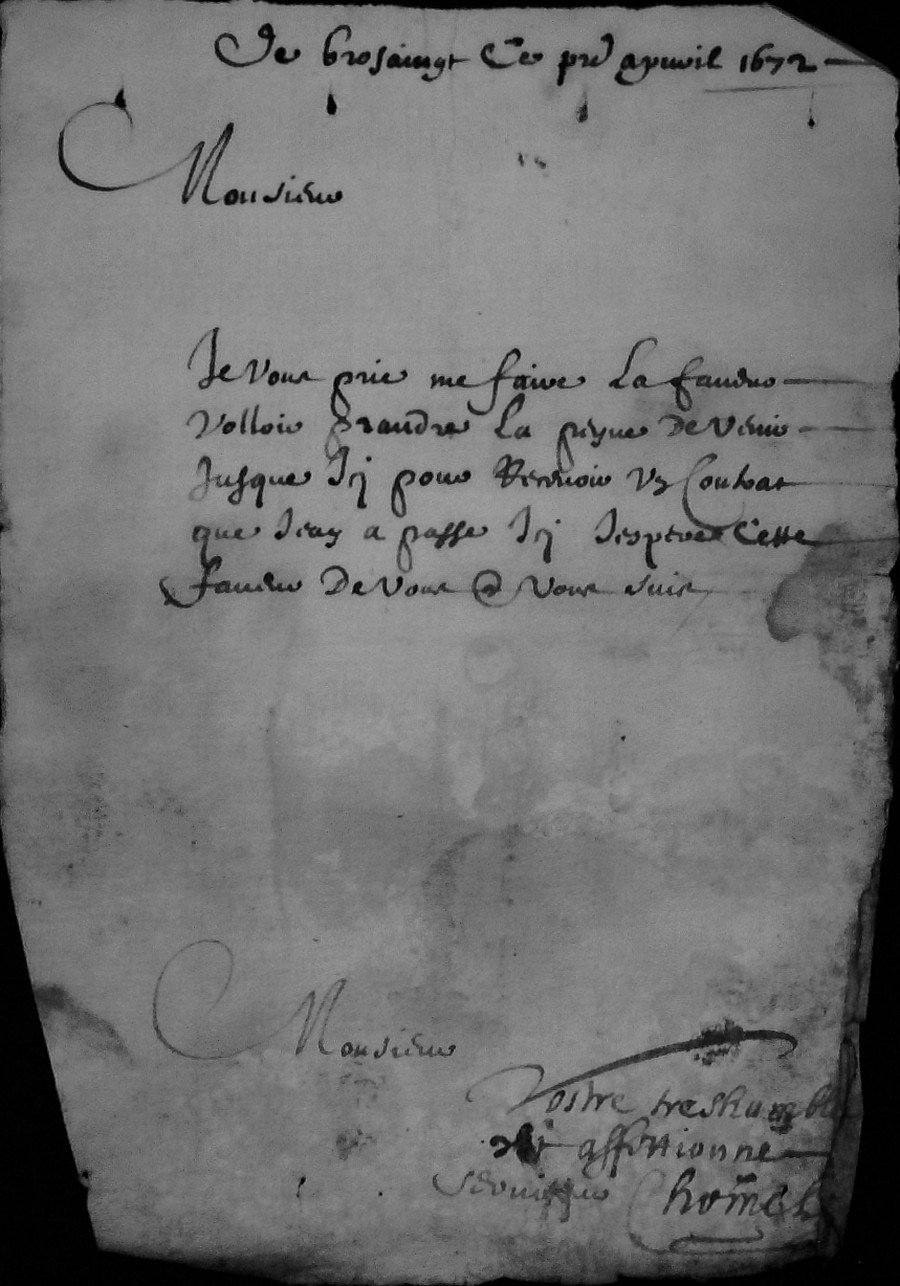 De brosaingt Ce pr̃ apuril 1672
Monsieur
Je vous prie me faire La faueur
volloir prandre La peyne De venir
Jusque Icj pour Receuoir vn Contrat
que Jeay a passe Icj Jespere Cette
faueur De vous & vous suis
Monsieur
Vostre treshumble
et affettionne
seruitteur Chomel